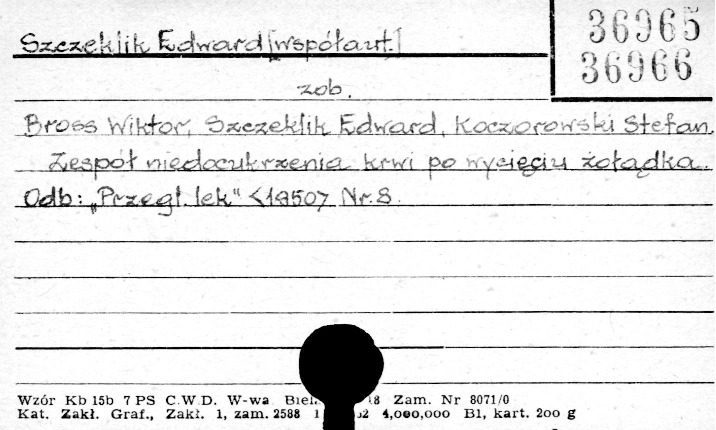 Szczeklik Edward [współaut.]
36965
36966
zob.
Bross Wiktor, Szczeklik Edward, Koczorowski Stefan.
Zespół niedocukrzenia krwi po wycięciu żołądka.
Odb: „Przegl. lek" <1950> Nr. 8
Wzór Kb 15b 7 PS C.W.D. W-wa 8 Zam. Nr 8071/0
Kat. Zakł. Graf., Zakł. 1, zam. 2588 1 52 4,000,000 B1, kart. 200 g